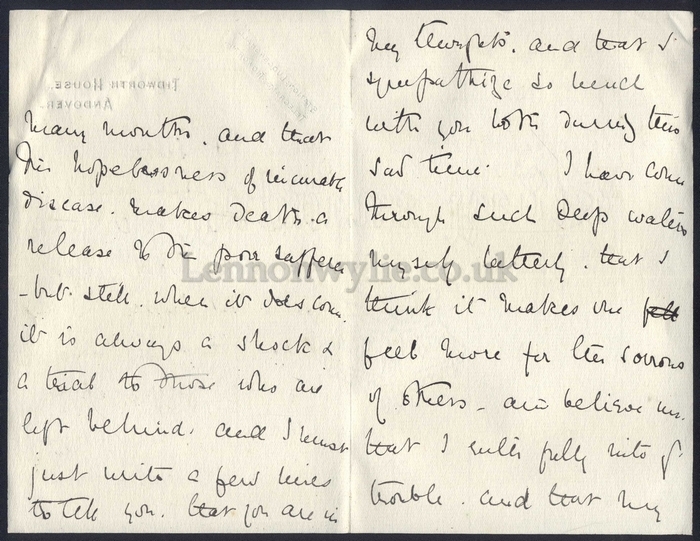 TIDWORTH HOUSE,
ANDOVER.
many months, and that
the hopelessness of incurable
disease. makes death. a
release to the poor sufferer
- but still. when it does come.
it is always a shock &
a trial to those who are
left behind. and I must
just write a few lines
to tell you. that you are in
my thoughts. and that I
sympathize so much
with you both during this
sad time. I have come
through such deep waters
myself latterly. that I
think it makes one felt
feel more for the sorrows
of others - and believe me.
that I enter fully into yr
trouble. and that my
Lennonwylie.co.uk